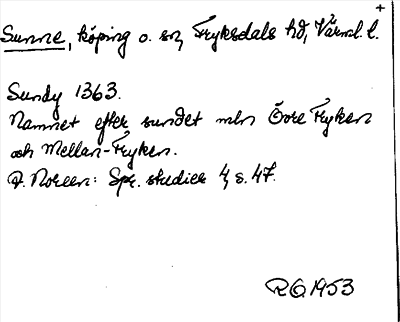 +
Sunne, köping o. sn, Fryksdals hd, Värml. l.
Sundy 1363.
Namnet efter sundet mln Övre Fryken
och Mellan-Fryken.
A. Noreen: Spr. studier 4 s. 47.
RO 1953